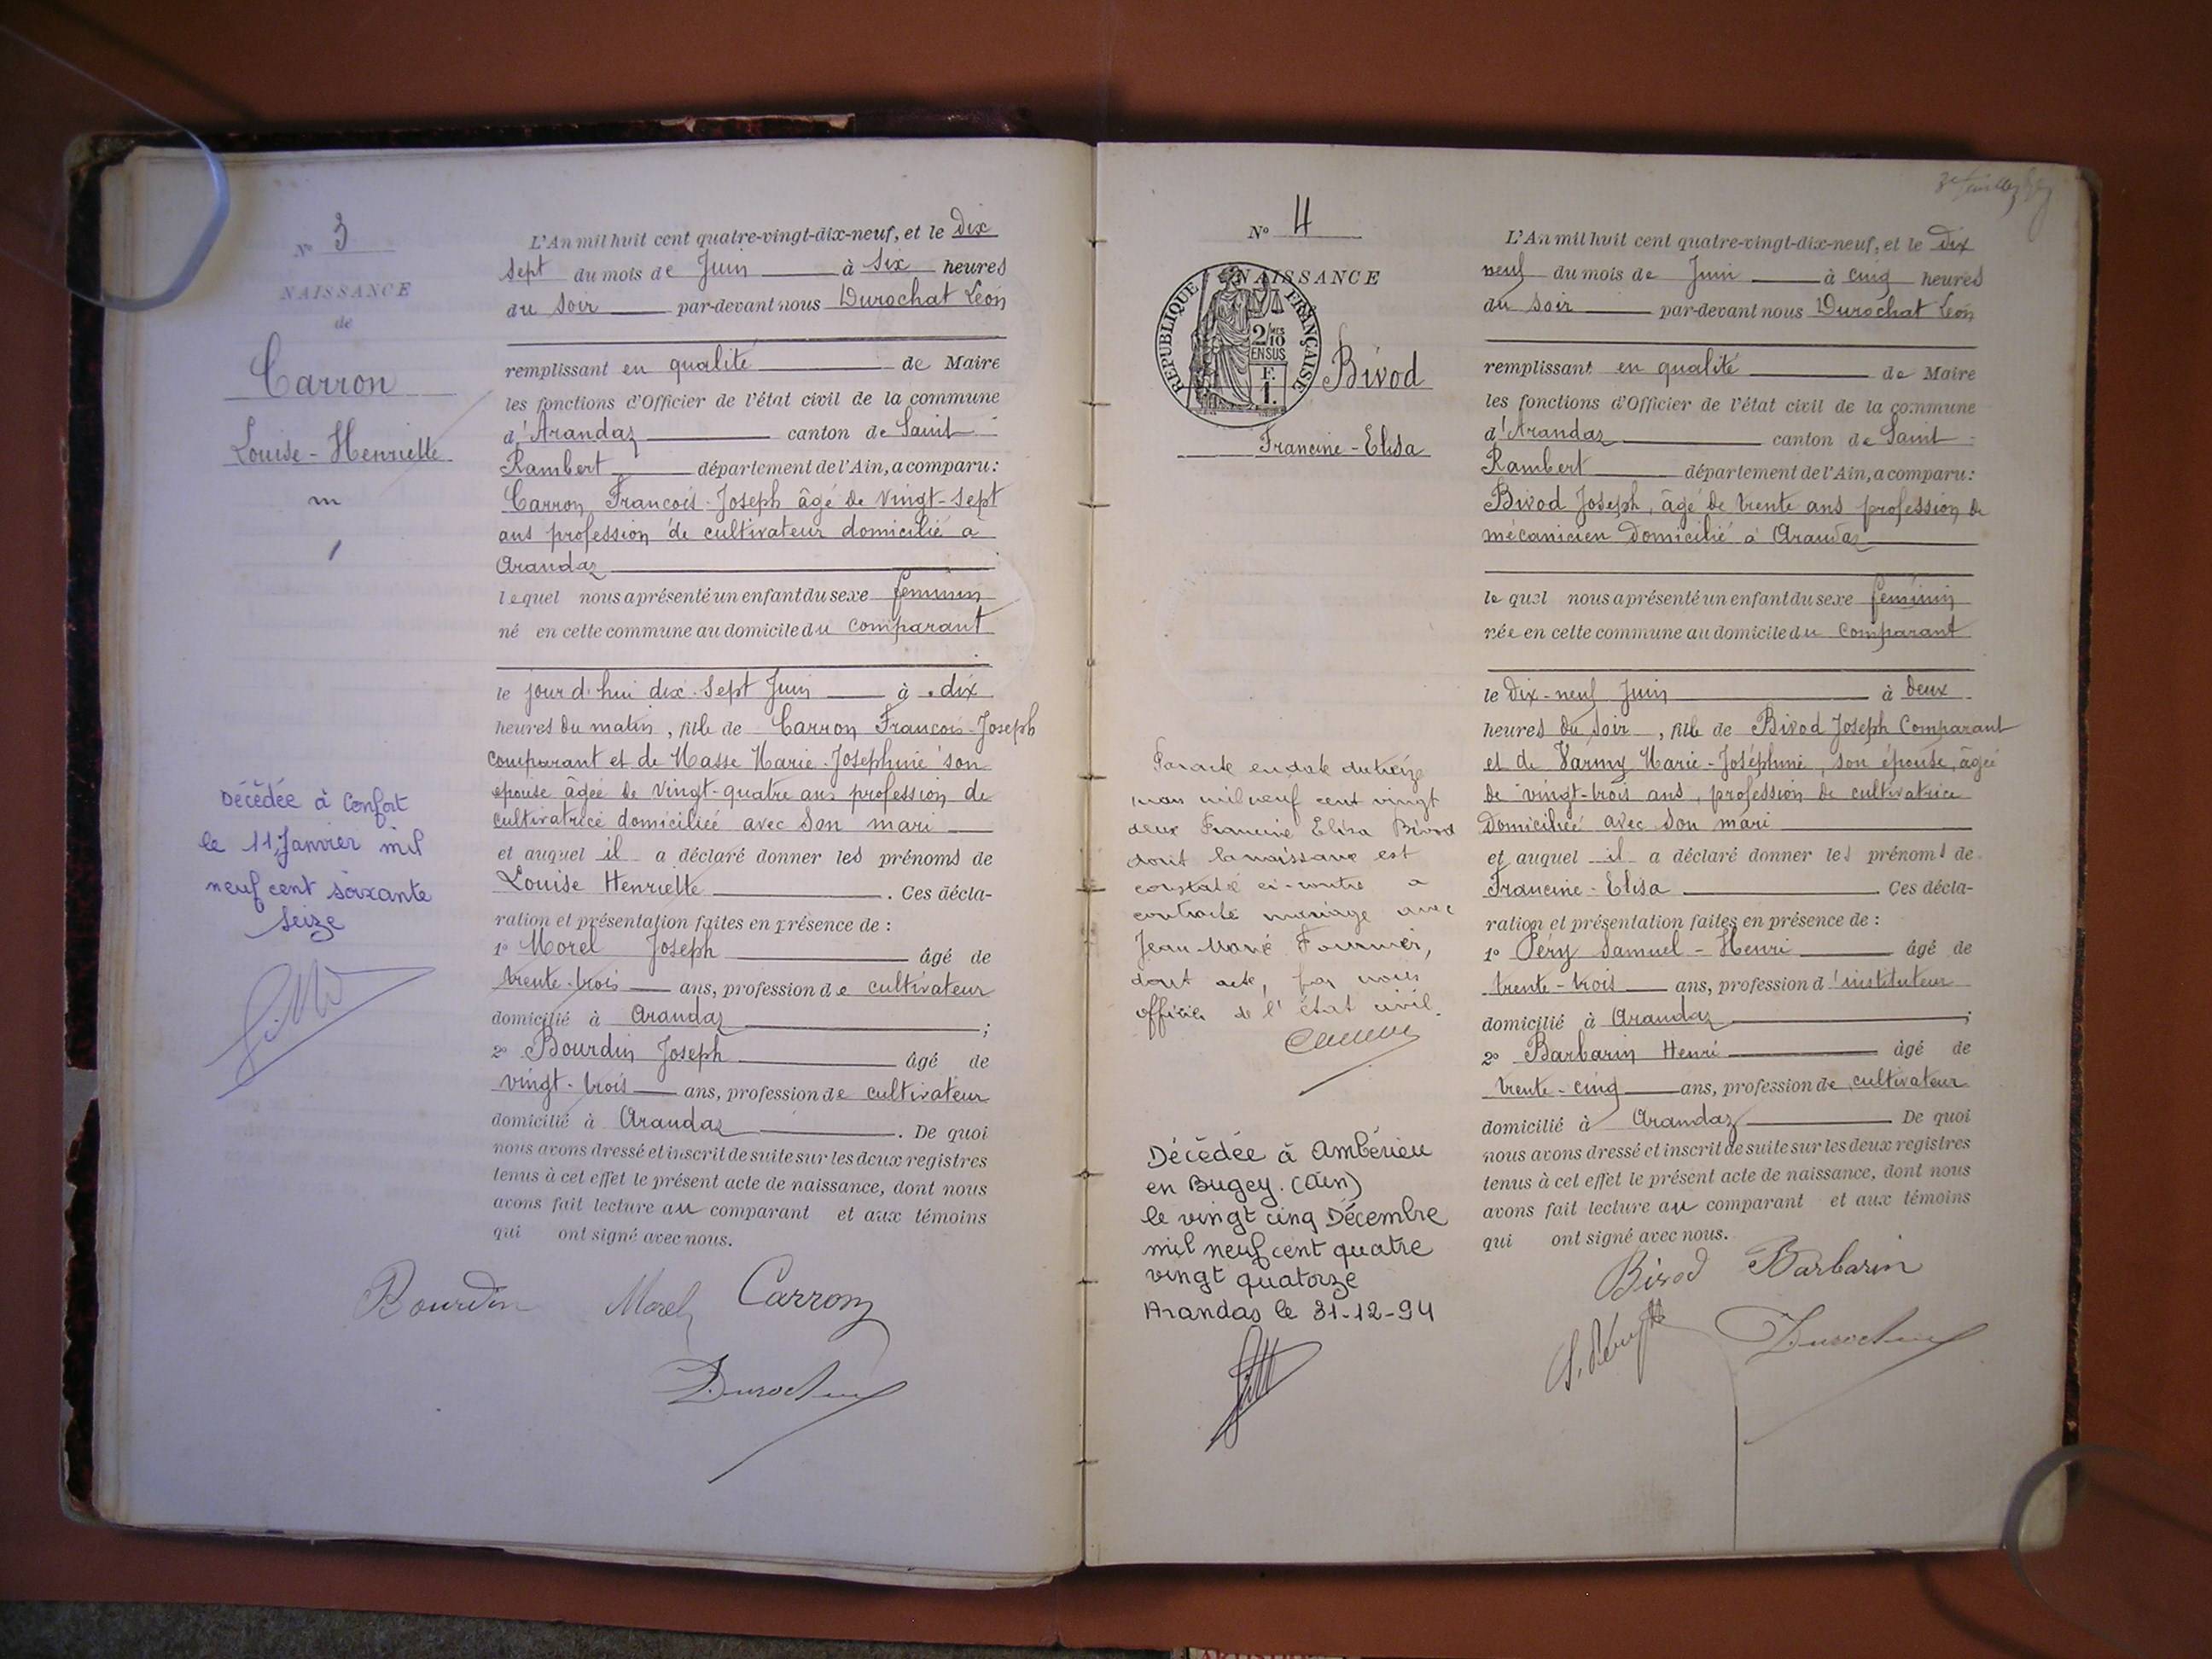 N° 3
NAISSANCE
de
Carron
Louise-Henriette
m
Décédée à Confort
le 11 Janvier mil
neuf cent soixante
seize
L'An mil huit cent quatre-vingt-dix-neuf, et le Dix
sept du mois de Juin à Six heures
du soir par-devant nous Durochat Léon
remplissant en qualité de Maire
les fonctions d'Officier de l'état civil de la commune
d'Arandaz canton de Saint-
Rambert département de l'Ain, a comparu:
Carron François-Joseph âgé de vingt-sept
ans profession de cultivateur domicilié à
Arandaz
lequel nous a présenté un enfant du sexe féminin
né en cette commune au domicile du comparant
le jour d'hui dix-sept Juin à dix
heures du matin, fille de Carron François-Joseph
comparant et de Masse Marie-Joséphine son
épouse âgée de vingt-quatre ans profession de
cultivatrice domiciliée avec son mari
et auquel il a déclaré donner les prénoms de
Louise Henriette. Ces décla-
ration et présentation faites en présence de :
1° Morel Joseph âgé de
trente-trois ans, profession de cultivateur
domicilié à Arandaz ;
2° Bourdin Joseph âgé de
vingt-trois ans, profession de cultivateur
domicilié à Arandaz. De quoi
nous avons dressé et inscrit de suite sur les deux registres
tenus à cet effet le présent acte de naissance, dont nous
avons fait lecture au comparant et aux témoins
qui ont signé avec nous.
Bourdin Morel Carron
Durochat
N° 4
NAISSANCE
REPUBLIQUE FRANÇAISE
2/10 EN SUS
F. 1.
Bivod
Francine-Elisa
Par acte en date du treize
mars mil neuf cent vingt
deux Francine Elisa Bivod
dont la naissance est
constatée ci-contre a
contracté mariage avec
Jean-Marie Fournier,
dont acte, par nous
officier de l'état civil.
Décédée à Ambérieu
en Bugey. (Ain)
le vingt cinq Décembre
mil neuf cent quatre
vingt quatorze
Arandas le 31-12-94
L'An mil huit cent quatre-vingt-dix-neuf, et le Dix
neuf du mois de Juin à cinq heures
du soir par-devant nous Durochat Léon
remplissant en qualité de Maire
les fonctions d'Officier de l'état civil de la commune
d'Arandaz canton de Saint-
Rambert département de l'Ain, a comparu:
Bivod Joseph, âgé de trente ans profession de
mécanicien domicilié à Arandaz
le quel nous a présenté un enfant du sexe féminin
née en cette commune au domicile du comparant
le Dix-neuf Juin à deux
heures du soir, fille de Bivod Joseph Comparant
et de Varmy Marie-Joséphine, son épouse, âgée
de vingt-trois ans, profession de cultivatrice
domiciliée avec son mari
et auquel il a déclaré donner les prénoms de
Francine-Elisa. Ces décla-
ration et présentation faites en présence de :
1° Péry Samuel-Henri âgé de
trente-trois ans, profession d'instituteur
domicilié à Arandaz ;
2° Barbarin Henri âgé de
trente-cinq ans, profession de cultivateur
domicilié à Arandaz De quoi
nous avons dressé et inscrit de suite sur les deux registres
tenus à cet effet le présent acte de naissance, dont nous
avons fait lecture au comparant et aux témoins
qui ont signé avec nous.
Bivod Barbarin
S. Péry Durochat